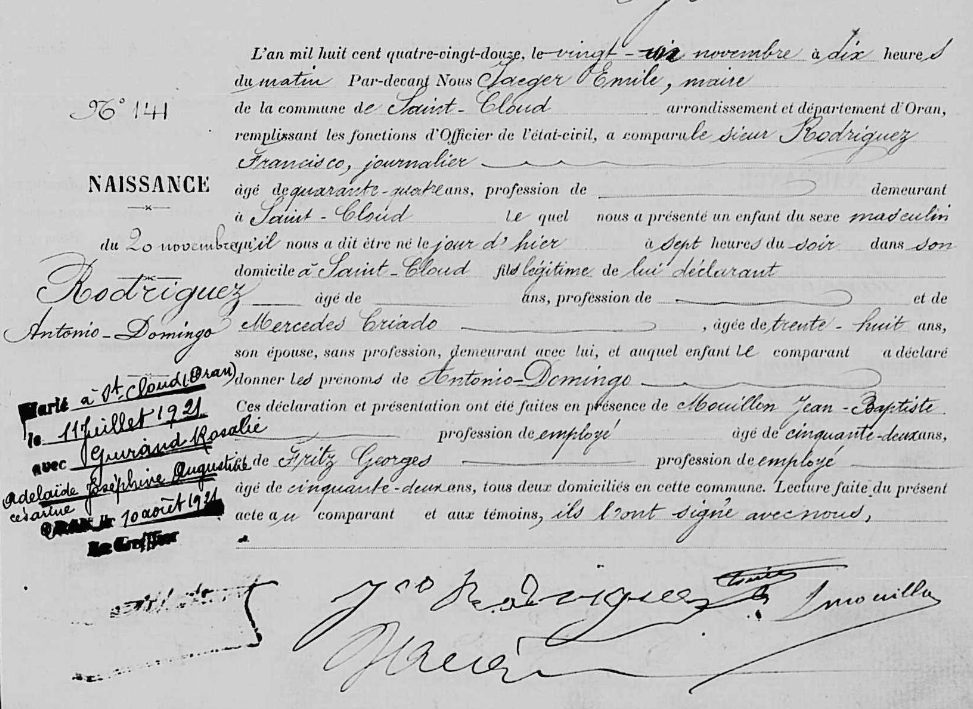 L'an mil huit cent quatre-vingt-douze, le vingt- novembre à dix heures
du matin Par-devant Nous Jaeger Emile, maire
de la commune de Saint-Cloud arrondissement et département d'Oran,
remplissant les fonctions d'Officier de l'état-civil, a comparu le sieur Rodriguez
Francisco, journalier
âgé de quarante-quatre ans, profession de demeurant
à Saint-Cloud le quel nous a présenté un enfant du sexe masculin
qu'il nous a dit être né le jour d'hier à sept heures du soir dans son
domicile à Saint-Cloud fils légitime de lui déclarant
âgé de ans, profession de et de
Mercedes Criado, âgée de trente-huit ans,
son épouse, sans profession, demeurant avec lui, et auquel enfant le comparant a déclaré
donner les prénoms de Antonio-Domingo
Ces déclaration et présentation ont été faites en présence de Mouillon Jean-Baptiste
profession de employé âgé de cinquante-deux ans,
et de Fritz Georges profession de employé
âgé de cinquante-deux ans, tous deux domiciliés en cette commune. Lecture faite du présent
acte au comparant et aux témoins, ils l'ont signé avec nous,
N° 141
NAISSANCE
du 20 novembre
Rodriguez
Antonio-Domingo
Marié à St Cloud (Oran)
le 11 Juillet 1921
avec Guiraud Rosalie
Adelaïde Joséphine Augustine
Césarine
ORAN le 10 août 1921
Le Greffier
Rodriguez